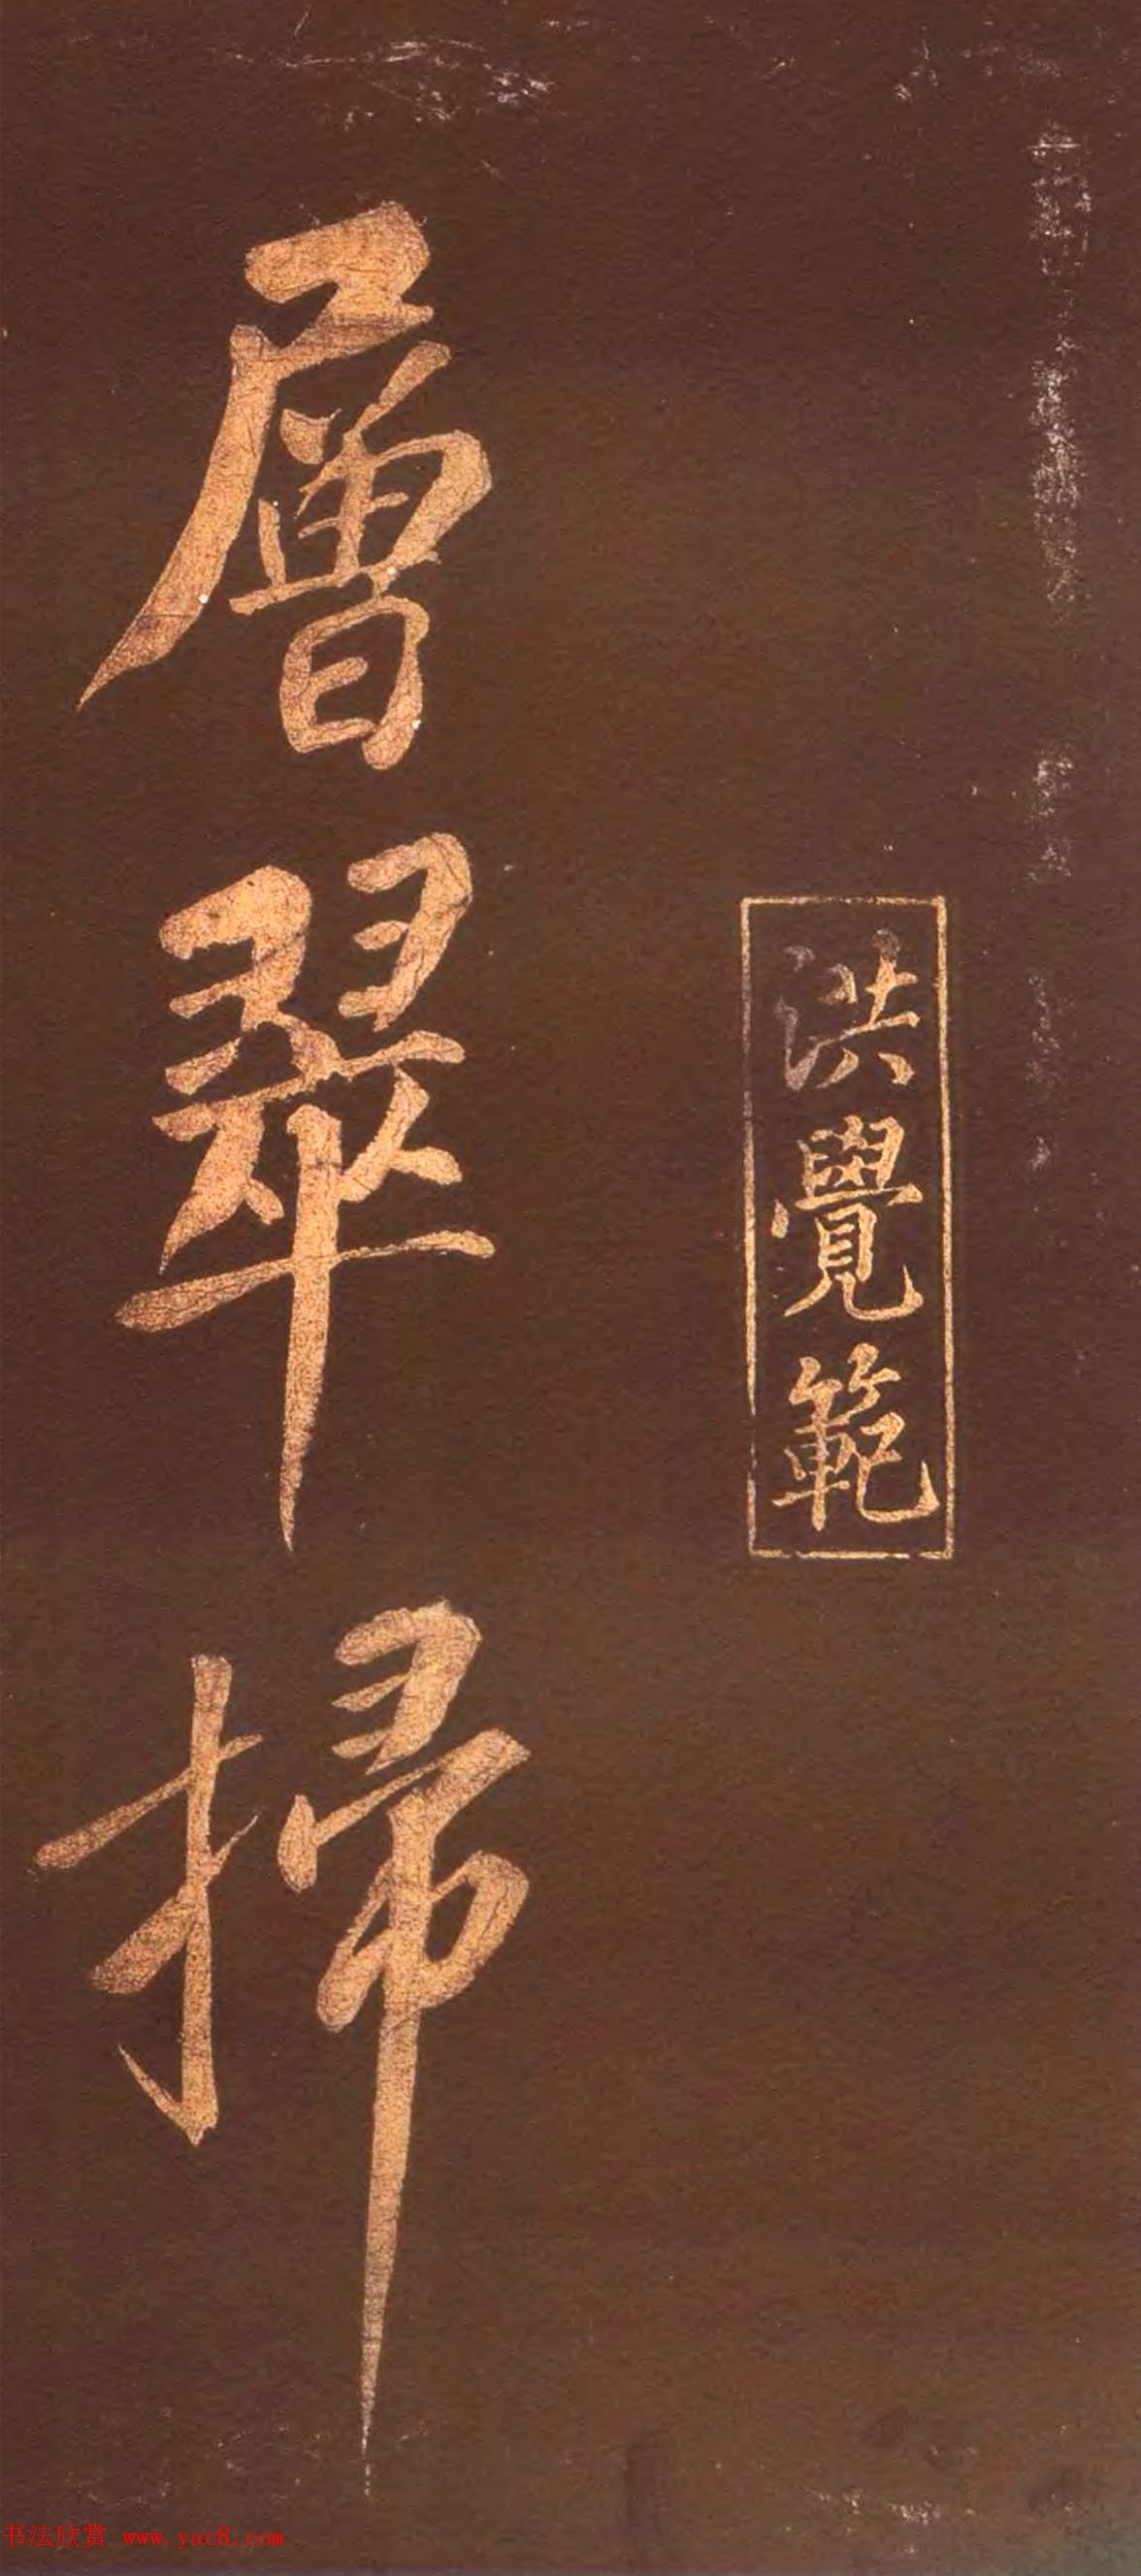 洪覺範
層翠掃
书法欣赏 www.yac8.com